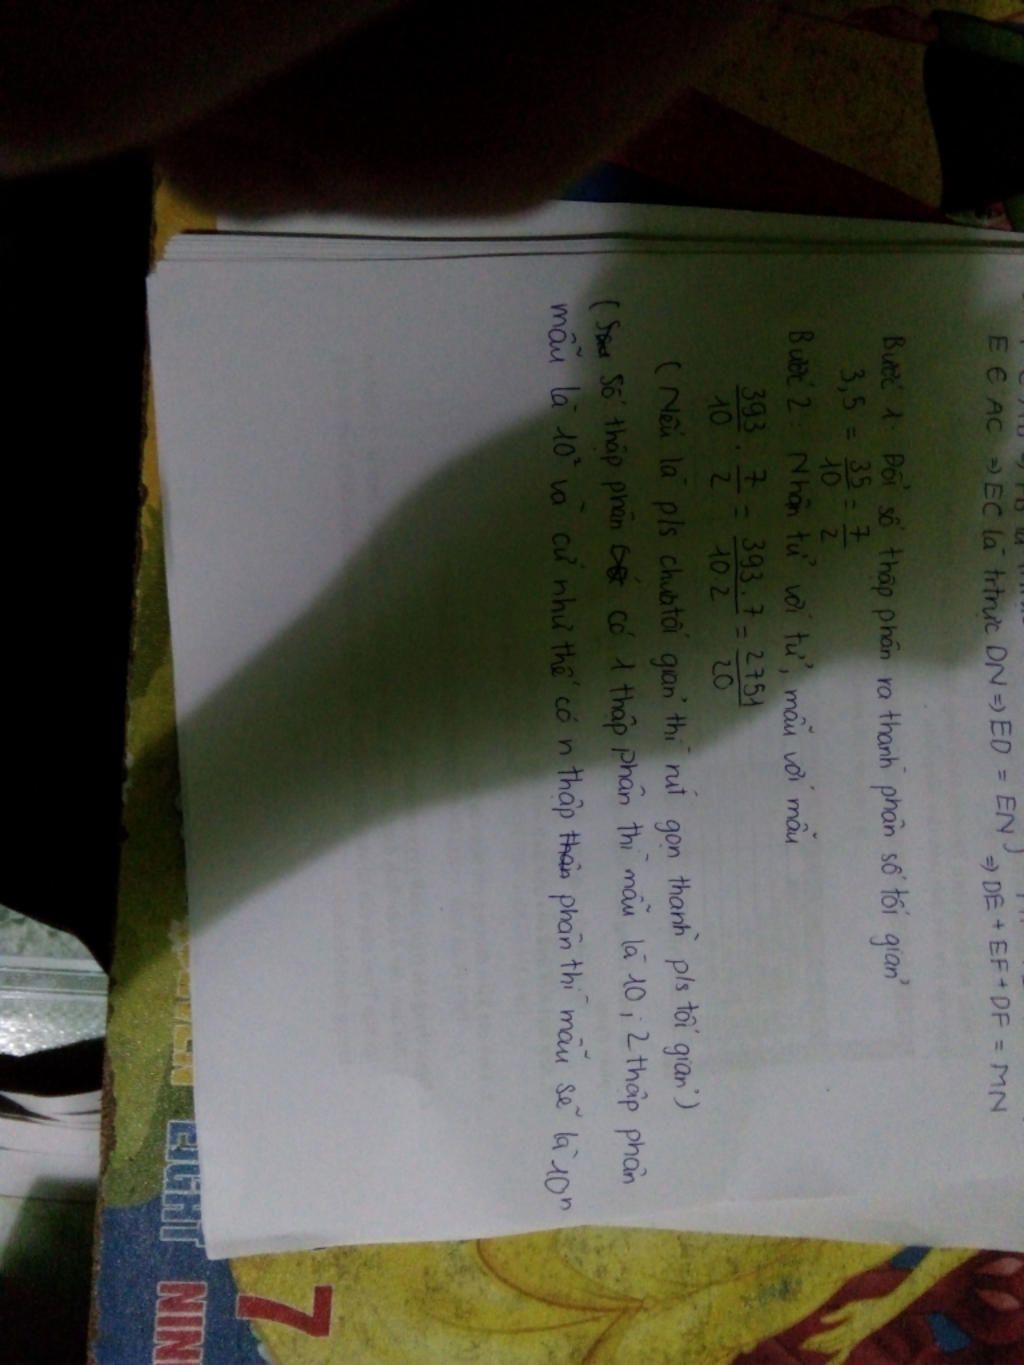 E ∈ AC ⇒ EC là tr trực DN ⇒ ED = EN } ⇒ DE + EF + DF = MN
Bước 1: Đổi số thập phân ra thành phân số tối giản
3,5 = 35/10 = 7/2
Bước 2: Nhân tử với tử, mẫu với mẫu
393/10 . 7/2 = 393.7/10.2 = 2751/20
(Nếu là p/s chưa tối giản thì rút gọn thành p/s tối giản)
(Số thập phân có 1 thập phân thì mẫu là 10, 2 thập phân
mẫu là 10² và cứ như thế có n thập phân thì mẫu sẽ là 10ⁿ
EIGHT
NIN
7